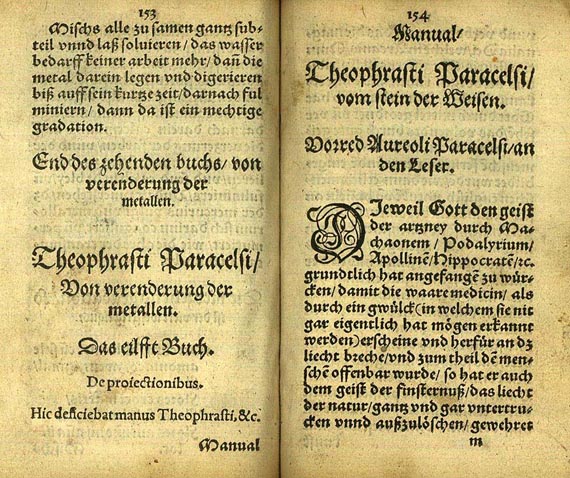 153
Mischs alle zu samen gantz sub-
teil vnnd laß soluieren/ das wasser
bedarff keiner arbeit mehr/ dañ die
metal darein legen vnd digerieren
biß auff sein kurtze zeit/ darnach ful
miniern/ dann da ist ein mechtige
gradation.
End des zehenden buchs/ von
verenderung der
metallen.
Theophrasti Paracelsi/
Von verenderung der
metallen.
Das eilfft Buch.
De proiectionibus.
Hic deficiebat manus Theophrasti, &c.
Manual
154
Manual/
Theophrasti Paracelsi/
vom stein der Weisen.
Vorred Aureoli Paracelsi/ an
den Leser.
DIeweil Gott den geist
der artzney durch Ma-
chaonem/ Podalyrium/
Apollinẽ/ Hippocratẽ/ ꝛc.
grundtlich hat angefangẽ zu wür-
cken/ damit die waare medicin/ als
durch ein gwülck (in welchem sie nit
gar eigentlich hat mögen erkannt
werden) erscheine vnd herfür an dz
liecht breche/ vnd zum theil dẽ men-
schẽ offenbar wurde/ so hat er auch
dem geist der finsternuß/ das liecht
der natur/ gantz vnd gar vntertru-
cken vnnd außzulöschen/ gewehret
m